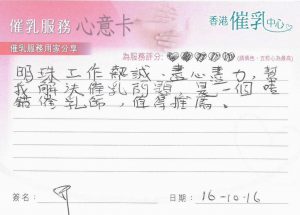 催乳服務 心意卡
香港催乳中心
催乳服務用家分享
為服務評分:
(請填色,五粒心為最高)
明珠工作熱誠、盡心盡力,幫
我解決催乳問題,是一個嘅
催乳師,值得推薦。
簽名:
日期: 16-10-16